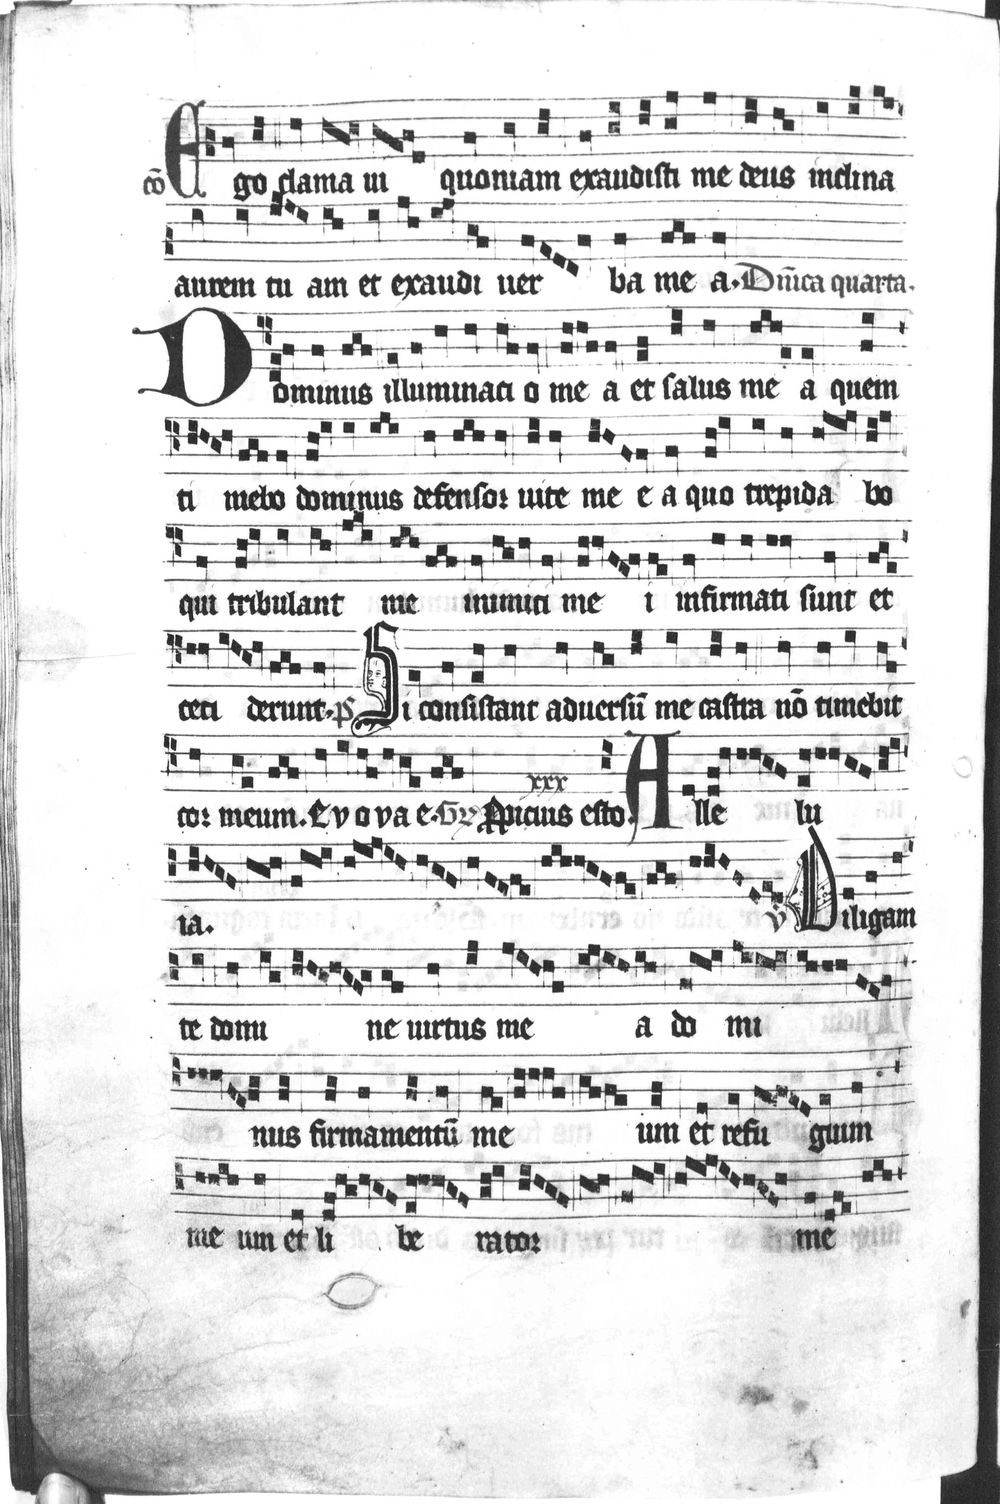 cō Ego clama ui quoniam exaudisti me deus inclina
aurem tu am et exaudi uer ba me a. Dn̄ica quarta.
Dominus illuminati o me a et salus me a quem
ti mebo dominus defensor uite me e a quo trepida bo
qui tribulant me inimici me i infirmati sunt et
ceci derunt. ps Si consistant aduersū me castra nō timebit
cor meum. Evovae. Gr̄ Ppicius esto. xxx Alle lu
ia. v̄ Diligam
te domi ne uirtus me a do mi
nus firmamentū me um et refu gium
me um et li be rator me